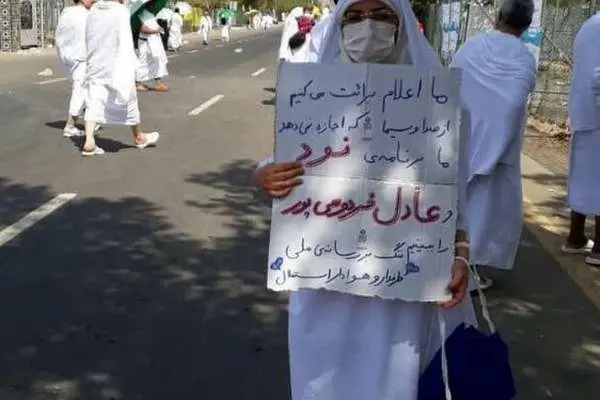 ما اعلام برائت می کیم
از صدا و سیما که اجازه نمی دهد
ما برنامه ی نود
و عادل فردوسی پور
را ببینیم ننگ بر رسانه ی ملی
طرفدار و هوادار استقلال